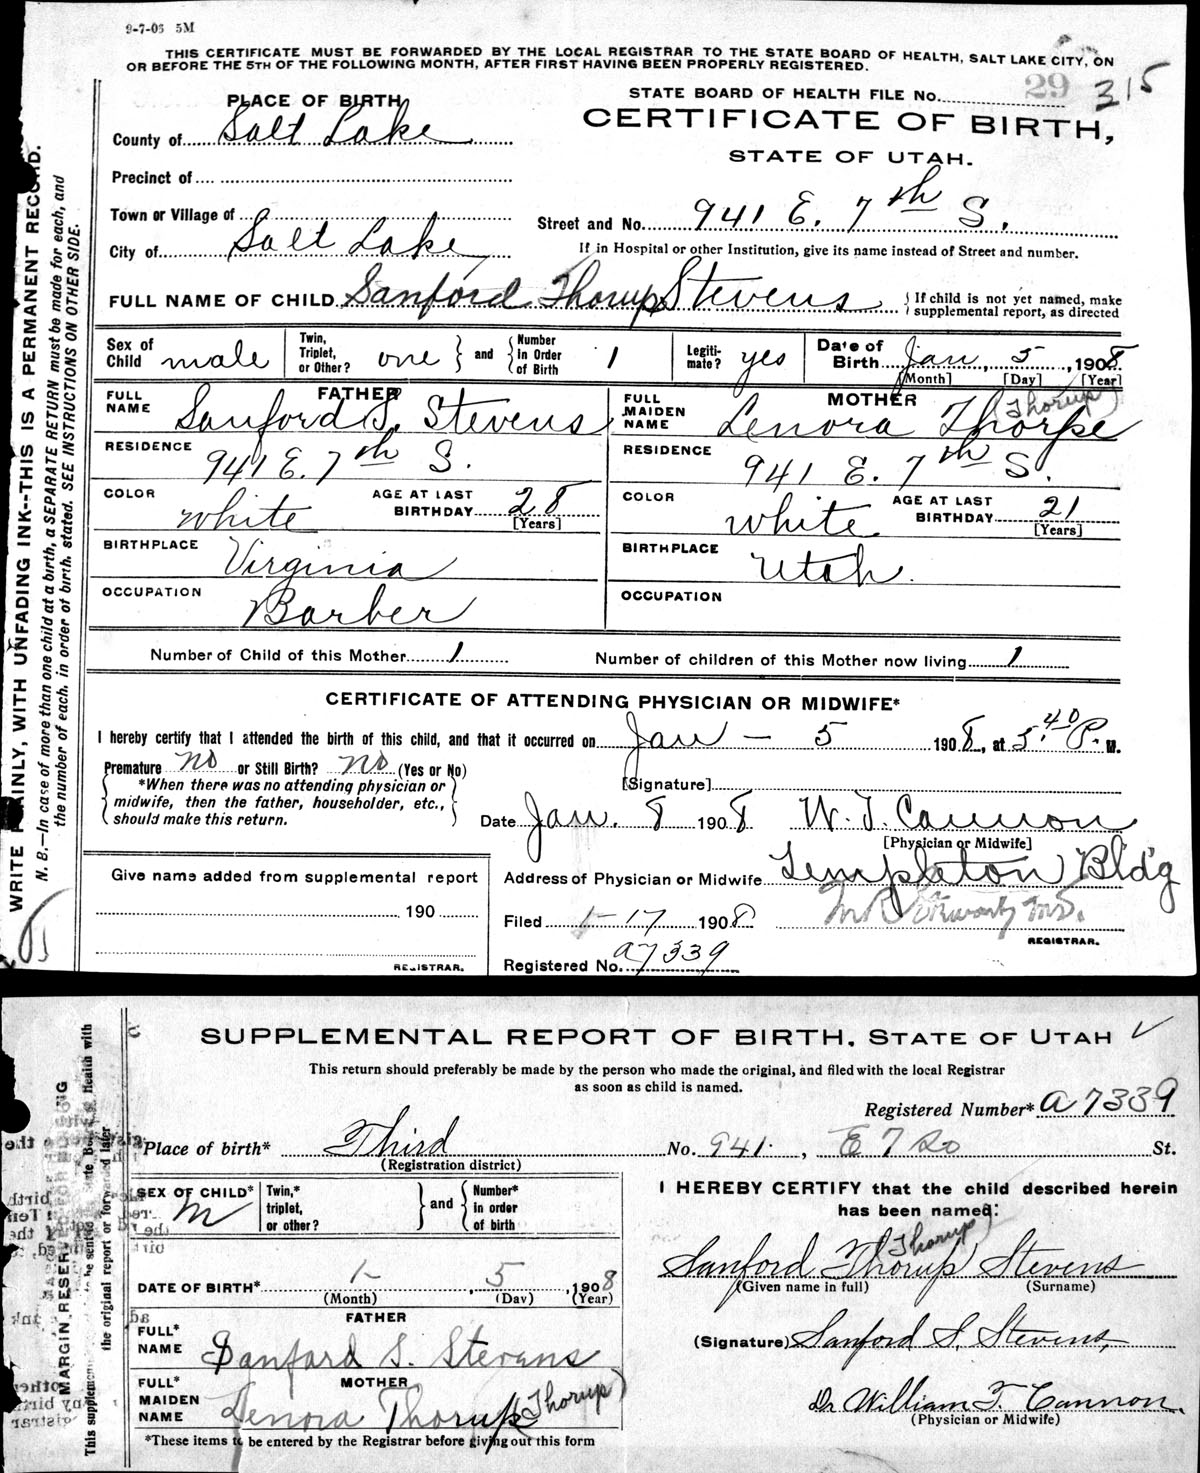 9-7-06 5M
THIS CERTIFICATE MUST BE FORWARDED BY THE LOCAL REGISTRAR TO THE STATE BOARD OF HEALTH, SALT LAKE CITY, ON
OR BEFORE THE 5TH OF THE FOLLOWING MONTH, AFTER FIRST HAVING BEEN PROPERLY REGISTERED.
STATE BOARD OF HEALTH FILE No. 29 315
PLACE OF BIRTH
CERTIFICATE OF BIRTH,
County of Salt Lake
STATE OF UTAH.
Precinct of
Town or Village of
Street and No. 941 E. 7th S.
City of Salt Lake
If in Hospital or other Institution, give its name instead of Street and number.
FULL NAME OF CHILD Sanford Thorup Stevens { If child is not yet named, make
supplemental report, as directed
Sex of Child male Twin, Triplet, or Other? one } and { Number in Order of Birth 1 Legiti-mate? yes Date of Birth Jan, 5, 1908
[Month] [Day] [Year]
FATHER
FULL NAME Sanford S. Stevens
MOTHER
FULL MAIDEN NAME Lenora Thorpe (Thorup)
RESIDENCE 941 E. 7th S.
RESIDENCE 941 E. 7th S.
COLOR white AGE AT LAST BIRTHDAY 28 [Years]
COLOR white AGE AT LAST BIRTHDAY 21 [Years]
BIRTHPLACE Virginia
BIRTHPLACE Utah.
OCCUPATION Barber
OCCUPATION
Number of Child of this Mother 1 Number of children of this Mother now living 1
CERTIFICATE OF ATTENDING PHYSICIAN OR MIDWIFE*
I hereby certify that I attended the birth of this child, and that it occurred on Jan - 5 1908, at 5.40 P. M.
Premature no or Still Birth? no (Yes or No)
[Signature]
*When there was no attending physician or
midwife, then the father, householder, etc.,
should make this return.
Date Jan. 8 1908 W. T. Cannon
[Physician or Midwife]
Address of Physician or Midwife Templeton Bldg
Give name added from supplemental report
190
REGISTRAR.
Filed 1-17 1908
REGISTRAR.
Registered No. a7339
WRITE PLAINLY, WITH UNFADING INK--THIS IS A PERMANENT RECORD.
N. B.—In case of more than one child at a birth, a SEPARATE RETURN must be made for each, and
the number of each, in order of birth, stated. SEE INSTRUCTIONS ON OTHER SIDE.
SUPPLEMENTAL REPORT OF BIRTH, STATE OF UTAH
This return should preferably be made by the person who made the original, and filed with the local Registrar
as soon as child is named.
Registered Number* a7339
Place of birth* Third No. 941, E 7 So St.
(Registration district)
SEX OF CHILD* M Twin,* triplet, or other? } and { Number* in order of birth
I HEREBY CERTIFY that the child described herein
has been named:
Thorup)
Sanford Thorup Stevens
(Given name in full) (Surname)
DATE OF BIRTH* 1- 5, 1908
(Month) (Day) (Year)
FATHER
FULL* NAME Sanford S. Stevens
(Signature) Sanford S. Stevens,
MOTHER
FULL* MAIDEN NAME Lenora Thorup (Thorup)
Dr William T. Cannon.
(Physician or Midwife)
*These items to be entered by the Registrar before giving out this form
MARGIN RESERV
This supplem be sent te B Health with
the original report or forwarded later